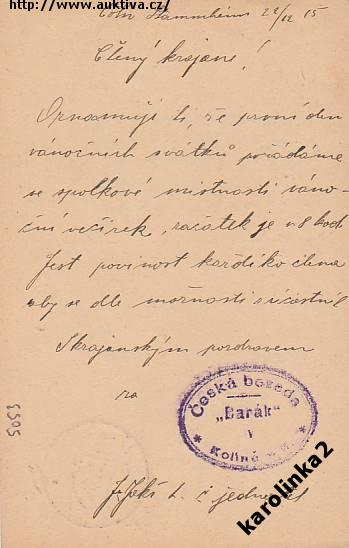 http://www.auktiva.cz/
Cöln Stammheim 22/12 15
Ctěný krajane!
Oznamuji ti, že první den
vánočních svátků pořádáme
ve spolkové místnosti váno-
ční večírek, začátek je v 8 hod
Jest povinost každého člena
aby se dle možnosti súčastnil
S krajanským pozdravem
za
Česká beseda
„Barák“
v
Kolíně n. R.
t. č. jednatel
5505
karolinka2